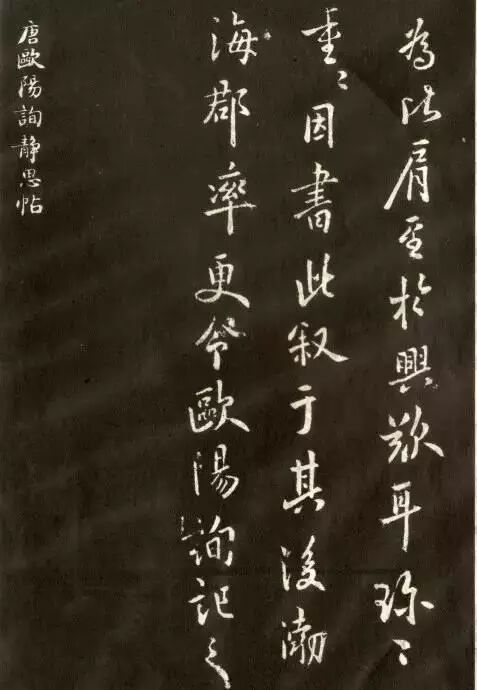 為比肩至於興歎耳珎〻
重〻因書此叙于其後渤
海郡率更令歐陽詢記之
唐歐陽詢静思帖